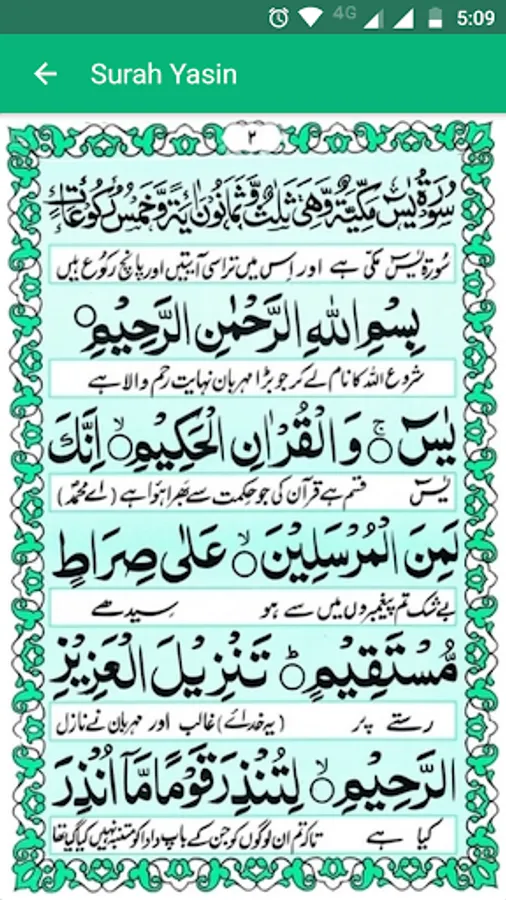 4G 5:09
Surah Yasin
٢
سُوْرَةُ يٰسٓ مَكِّيَّةٌ وَّهِيَ ثَلٰثٌ وَّثَمَانُوْنَ اٰيَةً وَّخَمْسُ رُكُوْعَاتٍ
سُورۃ یٰسٓ مکّی ہے اور اِس میں تراسی آیتیں اور پانچ رکوع ہیں
بِسْمِ اللّٰهِ الرَّحْمٰنِ الرَّحِيْمِ ○
شروع اللہ کا نام لے کر جو بڑا مہربان نہایت رحم والا ہے
يٰسٓ ○ۚ وَالْقُرْاٰنِ الْحَكِيْمِ ○ۙ اِنَّكَ
یٰسٓ قسم ہے قرآن کی جو حکمت سے بھرا ہوا ہے (اے محمدؐ)
لَمِنَ الْمُرْسَلِيْنَ ○ۙ عَلٰى صِرَاطٍ
بے شک تم پیغمبروں میں سے ہو سیدھے
مُّسْتَقِيْمٍ ○ؕ تَنْزِيْلَ الْعَزِيْزِ
رستے پر (یہ خدائے) غالب اور مہربان نے نازل
الرَّحِيْمِ ○ۙ لِتُنْذِرَ قَوْمًا مَّآ اُنْذِرَ
کیا ہے تاکہ تم ان لوگوں کو جن کے باپ دادا کو متنبہ نہیں کیا گیا تھا